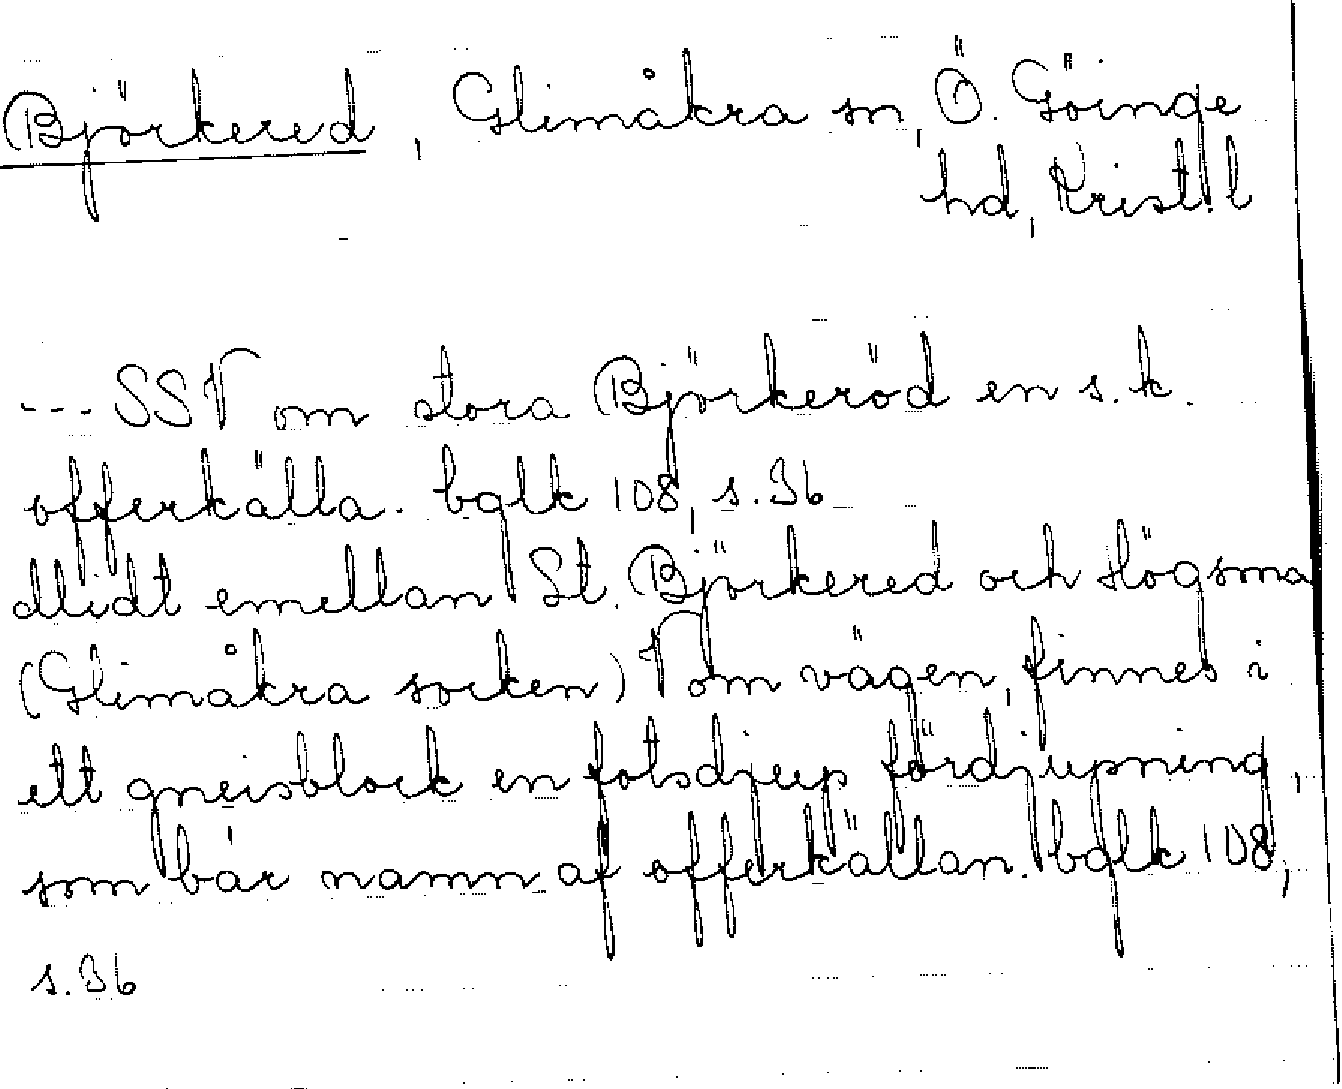 Björkered, Glimåkra sn, Ö. Göinge
hd, Krist. l
--- SSV om stora Björkeröd en s.k.
offerkälla. bglk 108, s. 36
Midt emellan St. Björkered och Högsma
(Glimåkra socken) V om vägen, finnes i
ett gneisblock en fotsdjup fördjupning,
som bär namn af offerkällan. bglk 108,
s. 36